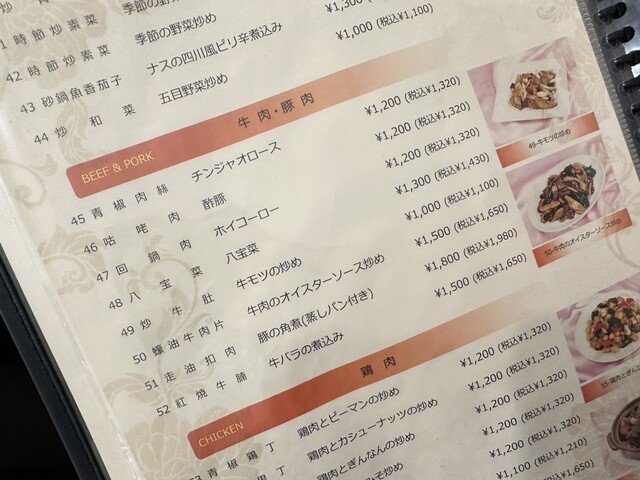 季節の野
1 時節炒素菜 季節の野菜炒め
42 時節炒素菜 季節の野菜炒め
43 砂鍋魚香茄子 ナスの四川風ピリ辛煮込み ¥1,300 (税込
44 炒和菜 五目野菜炒め ¥1,000 (税込¥1,100)
BEEF & PORK 牛肉・豚肉
45 青椒肉絲 チンジャオロース ¥1,200 (税込¥1,320)
46 咕咾肉 酢豚 ¥1,200 (税込¥1,320)
47 回鍋肉 ホイコーロー ¥1,200 (税込¥1,320)
48 八宝菜 八宝菜 ¥1,300 (税込¥1,430)
49 炒牛肚 牛モツの炒め ¥1,000 (税込¥1,100)
50 蠔油牛肉片 牛肉のオイスターソース炒め ¥1,500 (税込¥1,650)
51 走油扣肉 豚の角煮(蒸しパン付き) ¥1,800 (税込¥1,980)
52 紅焼牛腩 牛バラの煮込み ¥1,500 (税込¥1,650)
49-牛モツの炒め
50-牛肉のオイスターソース炒め
CHICKEN 鶏肉
53 青椒鶏丁 鶏肉とピーマンの炒め ¥1,200 (税込¥1,320)
鶏肉とカシューナッツの炒め ¥1,200 (税込¥1,320)
鶏肉とぎんなんの炒め ¥1,200 (税込¥1,320)
みそ炒め ¥1,200 (税込¥1,320)
¥1,100 (税込¥1,210)
(税込¥1,650)
55-鶏肉とぎんな